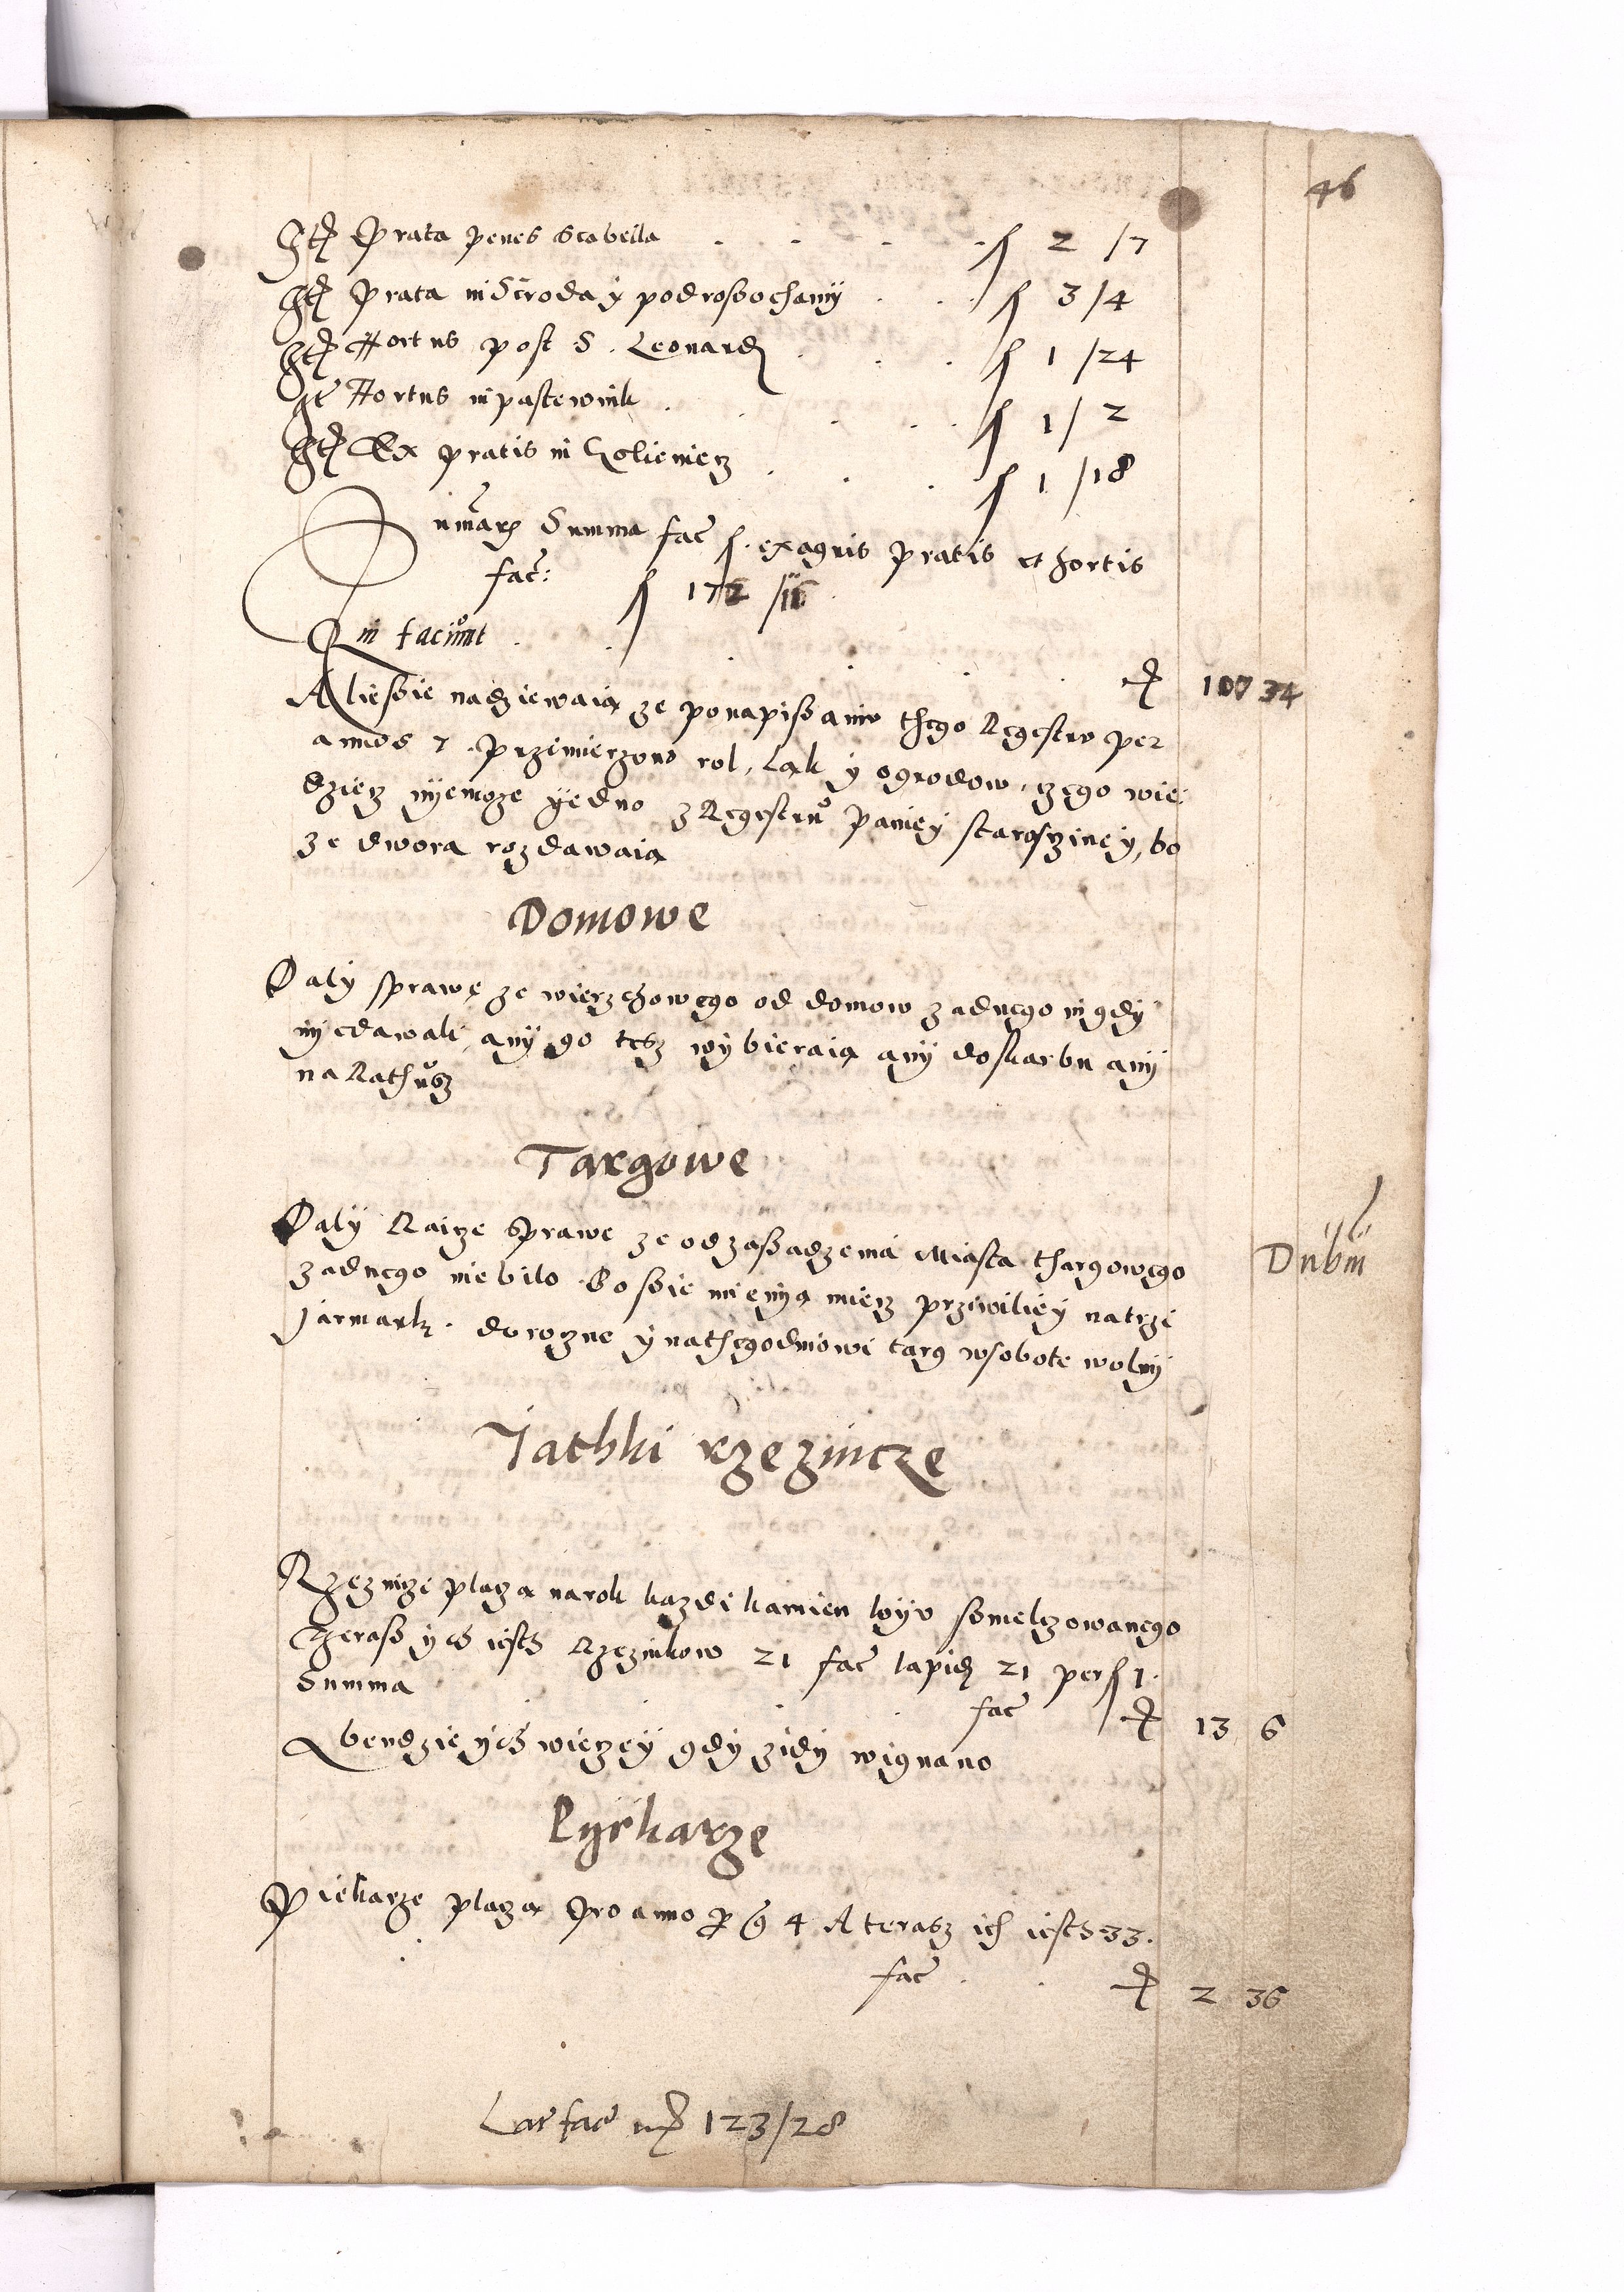 46
Itē Prata penes Scabella . . . . ₰ 2 /7
Itē Prata in Sroda y pod rosochamÿ . . . ₰ 3 /4
Itē Hortus post S. Leonardū . . . ₰ 1 /24
Ite Hortus in pastewnik . . . . ₰ 1 / 2
Itē Ex pratis in Kolienicz . . . ₰ 1 /18
Summarū Summa fac̄ ₰. ex agris pratis et hortis
fac̄: ₰ 172 /16 .
Qui faciunt . . . . . . 107 34
Alie sie nadziewaią ze po napissaniu thego Regestru per
annos 7 . przimierzono rol, Ląk y ogrodow, czego wie
dziecz nÿemoze ÿedno z Regestru paniey starosczineÿ, bo
ze dwora rozdawaią
Domowe
Dalÿ sprawę ze wierzchowego od domow zadnego nigdÿ
nÿedawali, anÿ go tesz wÿbieraią anÿ do skarbu anÿ
na Rathusz
Targowe
Dalÿ Raicze sprawe ze od zasadzenia Miasta thargowego
zadnego niebilo. Bo sie mienią miecz prziwiliey na trzi
Jarmarki . doroczne ÿ na thegodniowi targ w sobote wolnÿ
Dubiū
Jathki rzeznicze
Rzeznicze placzą na rok kazdi kamien loÿu smelczowanego
Theras ÿch iests Rzeznikow 21 fac̄ lapid 21 per ₰ 1.
Summa . . . fac̄ 13 6
Bendzie ÿch wieczeÿ gdÿ zidÿ wignano
Pyekarze
Piekarze placzą pro anno per g̃ 4 A terasz ich iests 33.
fac̄ . . 2 36
Lat̄ fac̄ 123/28